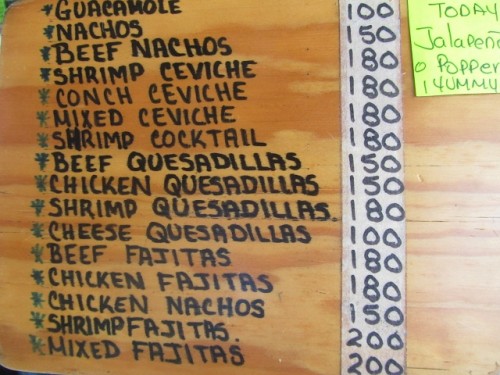 *GUACAMOLE 100
*NACHOS 150
*BEEF NACHOS 180
*SHRIMP CEVICHE 180
*CONCH CEVICHE 180
*MIXED CEVICHE 180
*SHRIMP COCKTAIL 180
*BEEF QUESADILLAS 150
*CHICKEN QUESADILLAS 150
*SHRIMP QUESADILLAS. 180
*CHEESE QUESADILLAS 100
*BEEF FAJITAS 180
*CHICKEN FAJITAS 180
*CHICKEN NACHOS 150
*SHRIMP FAJITAS. 200
*MIXED FAJITAS 200
TODAY
Jalapeñ
Popper
YUMMY